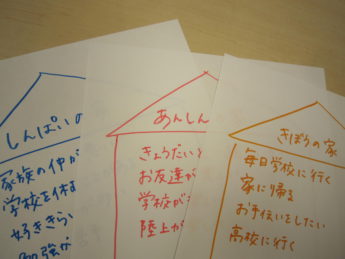 しんぱいの
家族の仲が
学校を休
好ききら
勉強が
あんしん
きょうだいと
お友達が
学校が
陸上が
きぼうの家
毎日学校に行く
家に帰る
お手伝いをしたい
高校に行く